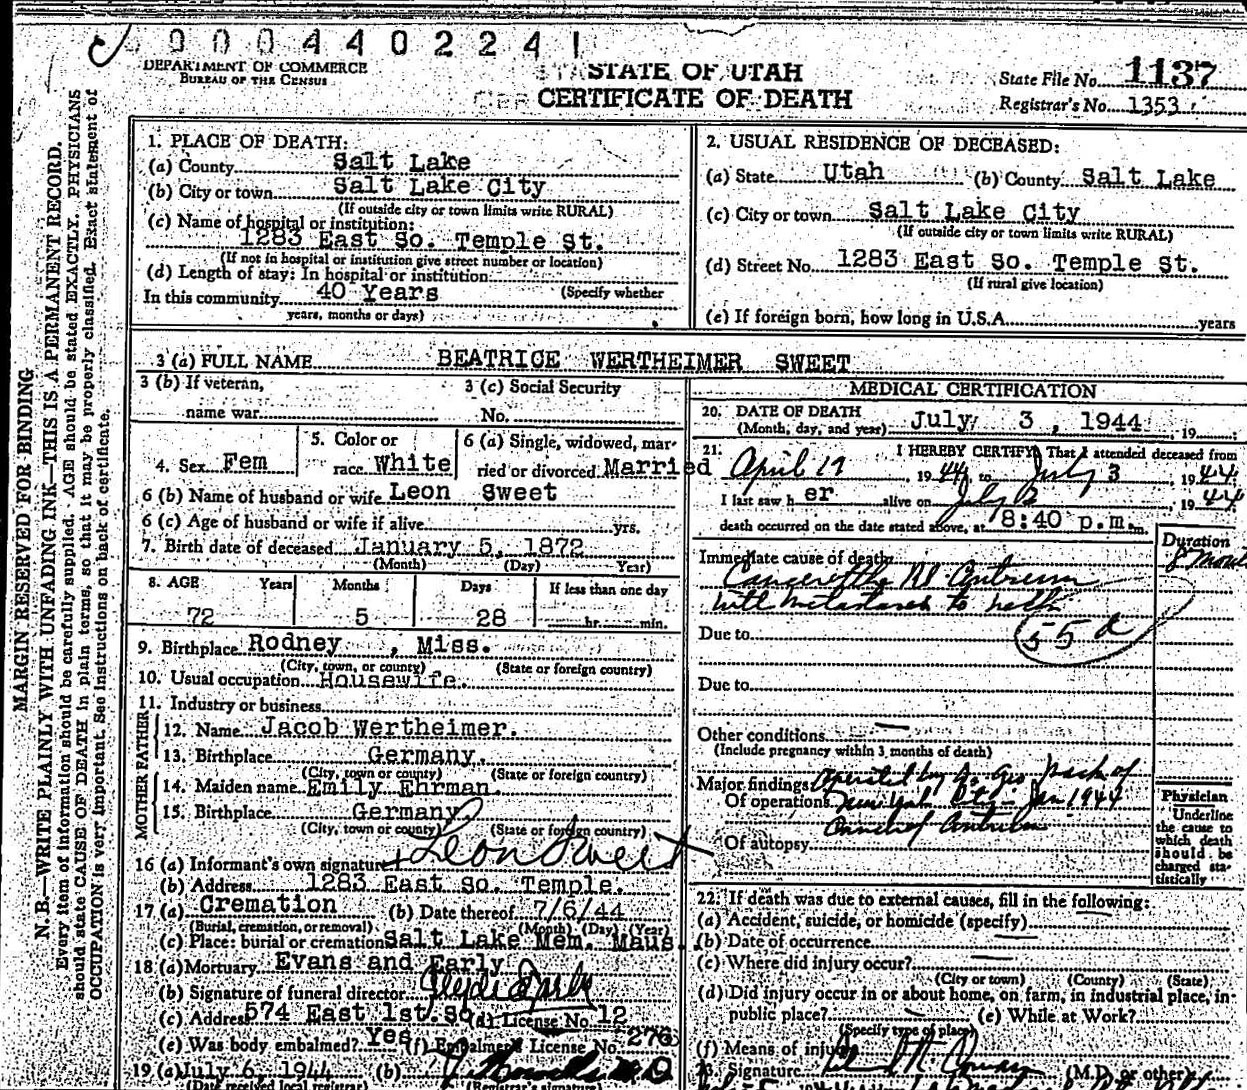 000440224
DEPARTMENT OF COMMERCE
BUREAU OF THE CENSUS
STATE OF UTAH
CERTIFICATE OF DEATH
State File No. 1137
Registrar's No. 1353
MARGIN RESERVED FOR BINDING
N. B.—WRITE PLAINLY WITH UNFADING INK—THIS IS A PERMANENT RECORD.
Every item of information should be carefully supplied. AGE should be stated EXACTLY. PHYSICIANS
should state CAUSE OF DEATH in plain terms, so that it may be properly classified. Exact statement of
OCCUPATION is very important. See instructions on back of certificate.
1. PLACE OF DEATH:
(a) County Salt Lake
(b) City or town Salt Lake City
(If outside city or town limits write RURAL)
(c) Name of hospital or institution:
1283 East So. Temple St.
(If not in hospital or institution give street number or location)
(d) Length of stay: In hospital or institution
In this community 40 Years (Specify whether
years, months or days)
2. USUAL RESIDENCE OF DECEASED:
(a) State Utah (b) County Salt Lake
(c) City or town Salt Lake City
(If outside city or town limits write RURAL)
(d) Street No. 1283 East So. Temple St.
(If rural give location)
(e) If foreign born, how long in U.S.A. years
3 (a) FULL NAME BEATRICE WERTHEIMER SWEET
3 (b) If veteran,
name war
3 (c) Social Security
No.
4. Sex Fem
5. Color or
race White
6 (a) Single, widowed, mar-
ried or divorced Married
6 (b) Name of husband or wife Leon Sweet
6 (c) Age of husband or wife if alive yrs.
7. Birth date of deceased January 5, 1872
(Month) (Day) Year)
8. AGE Years Months Days If less than one day
72 5 28 hr. min.
9. Birthplace Rodney, Miss.
(City, town, or county) (State or foreign country)
10. Usual occupation Housewife.
11. Industry or business
FATHER
12. Name Jacob Wertheimer.
13. Birthplace Germany.
(City, town or county) (State or foreign country)
MOTHER
14. Maiden name Emily Ehrman.
15. Birthplace Germany
(City, town or county) (State or foreign country)
16 (a) Informant's own signature Leon Sweet
(b) Address 1283 East So. Temple.
17 (a) Cremation (b) Date thereof 7/6/44
(Burial, cremation, or removal) (Month) (Day) (Year)
(c) Place: burial or cremation Salt Lake Mem. Maus.
18 (a) Mortuary Evans and Early
(b) Signature of funeral director Clyde Early
(c) Address 574 East 1st. So. (d) License No. 12
(e) Was body embalmed? Yes (f) Embalmer License No. 276
19 (a) July 6, 1944 (b) M.D.
(Date received local registrar) (Registrar's signature)
MEDICAL CERTIFICATION
20. DATE OF DEATH
(Month, day, and year) July 3, 1944, 19
21. I HEREBY CERTIFY, That I attended deceased from
April 19, 1944, to July 3, 1944
I last saw her alive on July 2, 1944
death occurred on the date stated above, at 8:40 p.m. m.
Duration
8 months
Immediate cause of death
Cancer of the Rt Antrum
with metastases to neck
Due to 55d
Due to
Other conditions —
(Include pregnancy within 3 months of death)
Major findings: operated by Dr. Geo. Pack of
Of operations New York City - Jan 1944
of antrum
Of autopsy
Physician
Underline
the cause to
which death
should be
charged sta-
tistically
22. If death was due to external causes, fill in the following:
(a) Accident, suicide, or homicide (specify) —
(b) Date of occurrence —
(c) Where did injury occur? —
(City or town) (County) (State)
(d) Did injury occur in or about home, on farm, in industrial place, in-
public place? (e) While at Work?
(Specify type of place)
(f) Means of injury
23. Signature (M.D. or other)